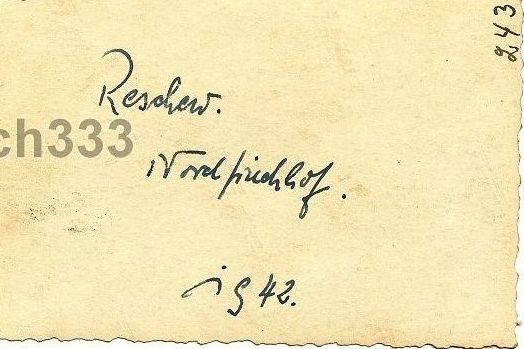 Reschew.
Nordfriedhof.
1942.
243
ch333